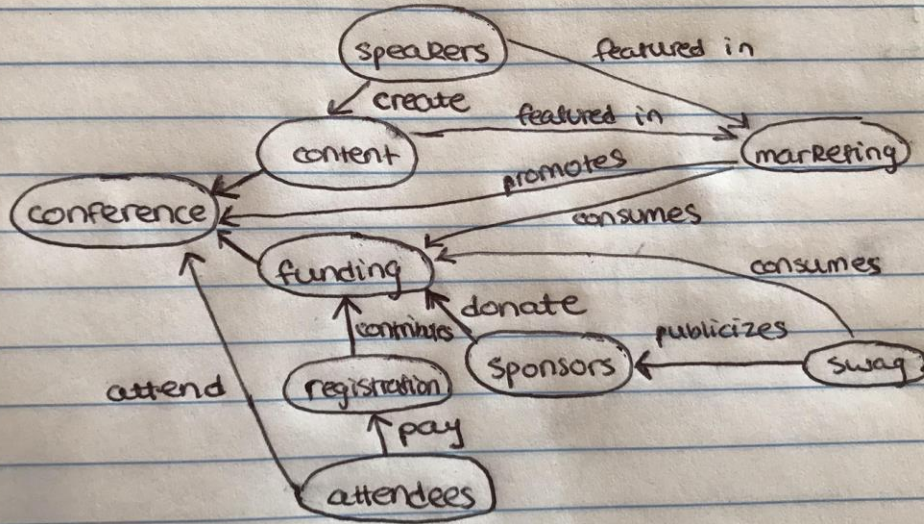 speakers
featured in
create
featured in
content
marketing
promotes
conference
consumes
funding
consumes
donate
contributes
publicizes
sponsors
swag
registration
attend
pay
attendees